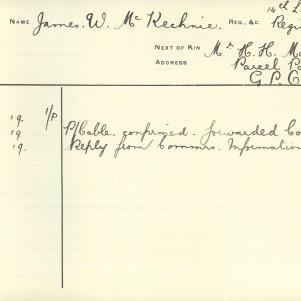 NAME James. W. Mc Kechnie. REG., &C. 14th L
Regi
NEXT OF KIN Mr H. H. Mc
ADDRESS Parcel Po
G. P. O
1/P
19. P/Cable. confirmed. forwarded Co
19
19. Reply from Commrs. Information